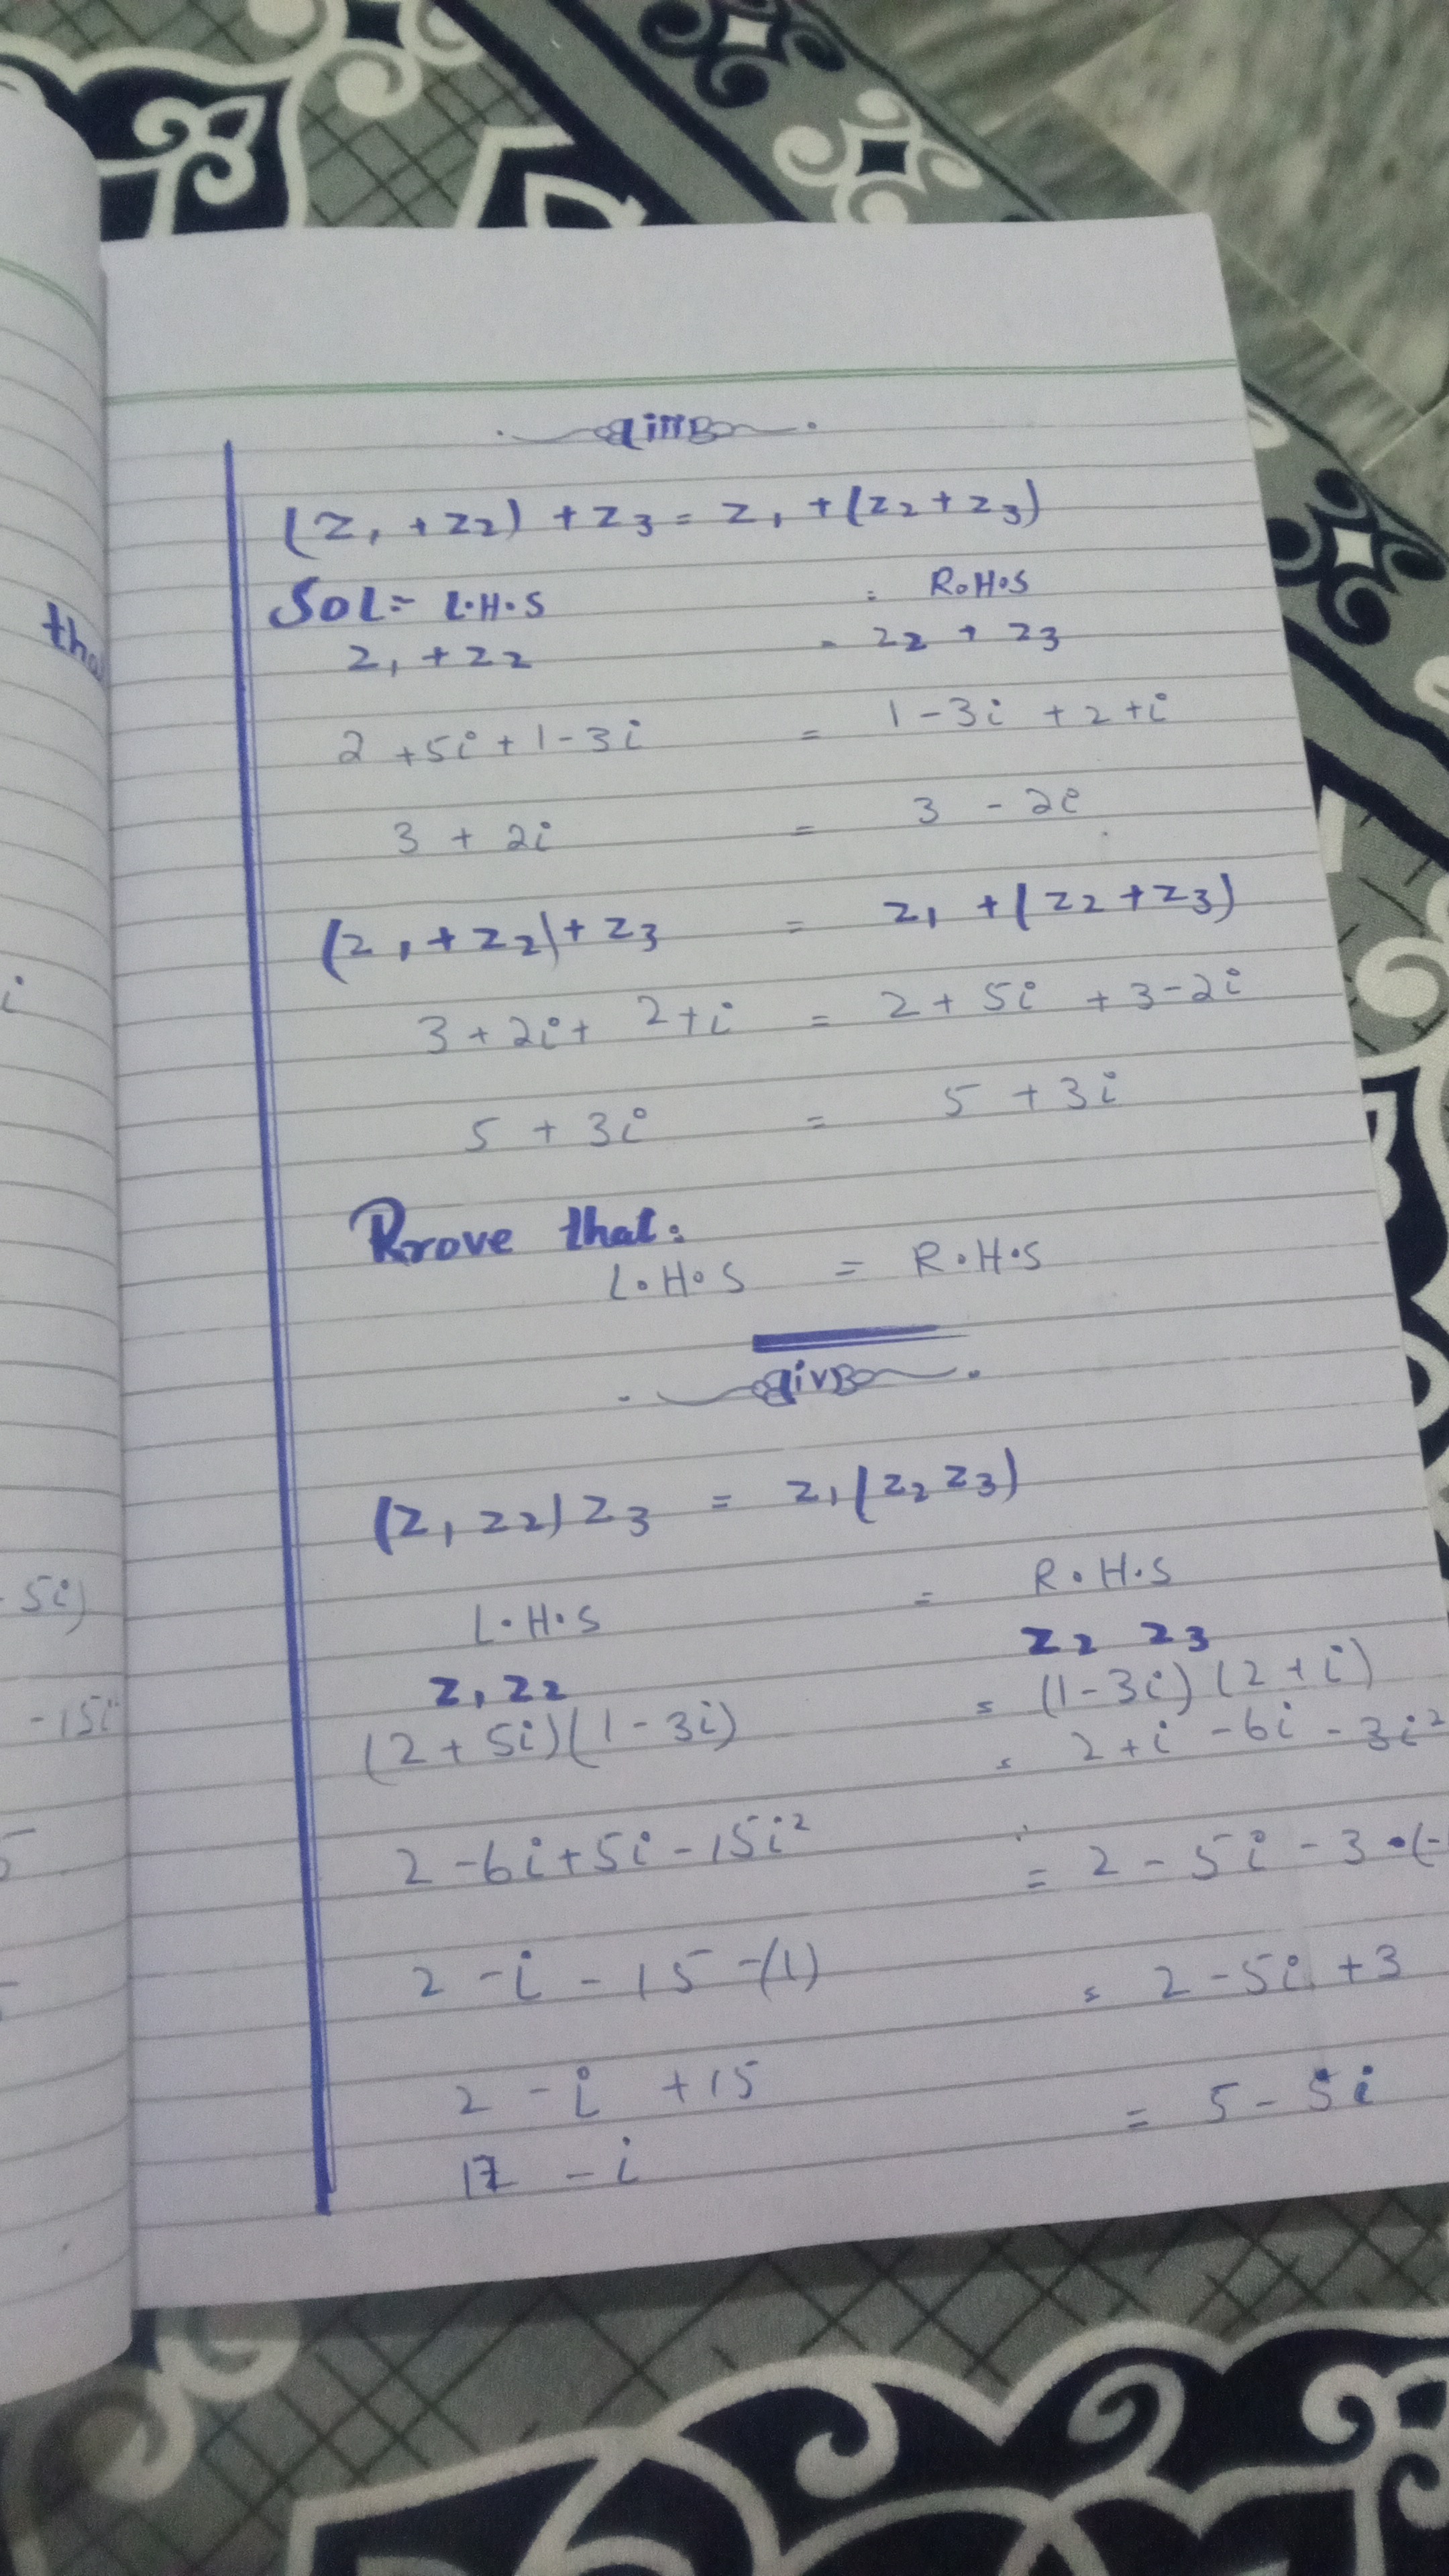 iii
(z₁ + z₂) + z₃ = z₁ + (z₂ + z₃)
SOL= L.H.S = R.H.S
z₁ + z₂ = z₂ + z₃
2 + 5i + 1 - 3i = 1 - 3i + 2 + i
3 + 2i = 3 - 2i
(z₁ + z₂) + z₃ = z₁ + (z₂ + z₃)
3 + 2i + 2 + i = 2 + 5i + 3 - 2i
5 + 3i = 5 + 3i
Prove that:
L.H.S = R.H.S
iv
(z₁ z₂) z₃ = z₁ (z₂ z₃)
L.H.S = R.H.S
z₁ z₂ z₂ z₃
(2 + 5i)(1 - 3i) = (1 - 3i)(2 + i)
= 2 + i - 6i - 3i²
2 - 6i + 5i - 15i² = 2 - 5i - 3 •(-
2 - i - 15 -(1) = 2 - 5i + 3
2 - i + 15 = 5 - 5i
17 - i